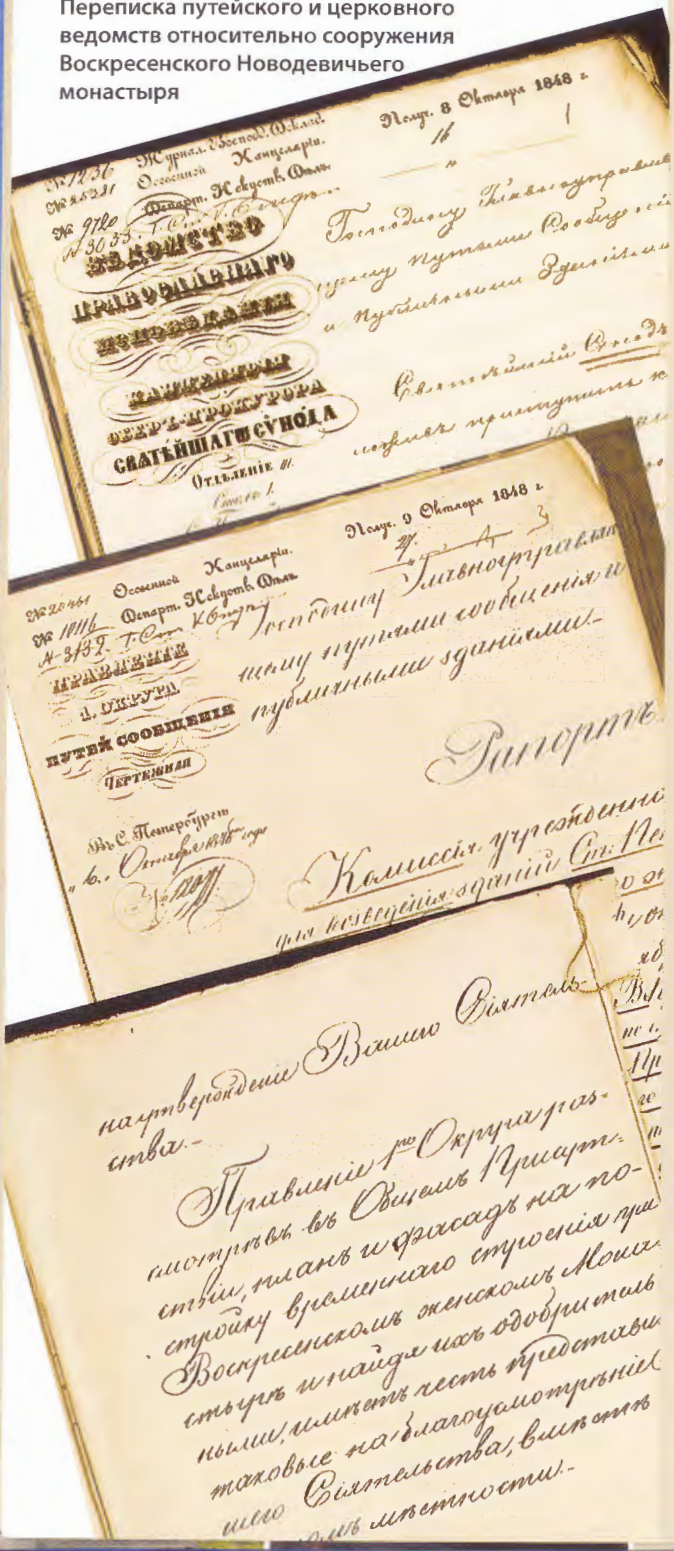 Переписка путейского и церковного
ведомств относительно сооружения
Воскресенского Новодевичьего
монастыря
№ 1236 Журнал. Господ. Доклад.
№ 25321 Особенной Канцеляріи.
№ 9720 Департ. Искуств. Дѣлъ.
№ 3033
Получ. 8 Октября 1848 г.
16
ВѢДОМСТВО
ПРАВОСЛАВНАГО
ИСПОВѢДАНІЯ
КАНЦЕЛЯРІЯ
ОБЕРЪ-ПРОКУРОРА
СВЯТѢЙШАГѠ СѴНОДА
Отдѣленіе III.
Столъ 1.
Господину Главноуправляю
щему Путями Сообщеній
и Публичными Зданіями
Святѣйшій Синодъ
приступить к
Получ. 9 Октября 1848 г.
27
№ 20461 Особенной Канцеляріи.
№ 10116 Департ. Искуств. Дѣлъ.
№ 3132
ПРАВЛЕНІЕ
1. ОКРУГА
ПУТЕЙ СООБЩЕНІЯ
ЧЕРТЕЖНАЯ
Въ С. Петербургѣ
„6„ Октября 1848 года
Господину Главноуправляю
щему путями сообщенія и
публичными зданіями.-
Рапортъ
Комиссія, учрежденна
для возведенія зданій Ст: Пе
на утвержденіе Вашего Сіятель-
ства.-
Правленіе 1го Округа раз-
смотрѣвъ въ Общемъ Присут-
ствіи, планъ и фасадъ на по-
стройку временнаго строенія при
Воскресенскомъ женскомъ Мона-
стырѣ и найдя ихъ одобритель
ными, имѣетъ честь представи
таковые на благоусмотрѣніе
шего Сіятельства, вмѣстѣ
мѣстности.-